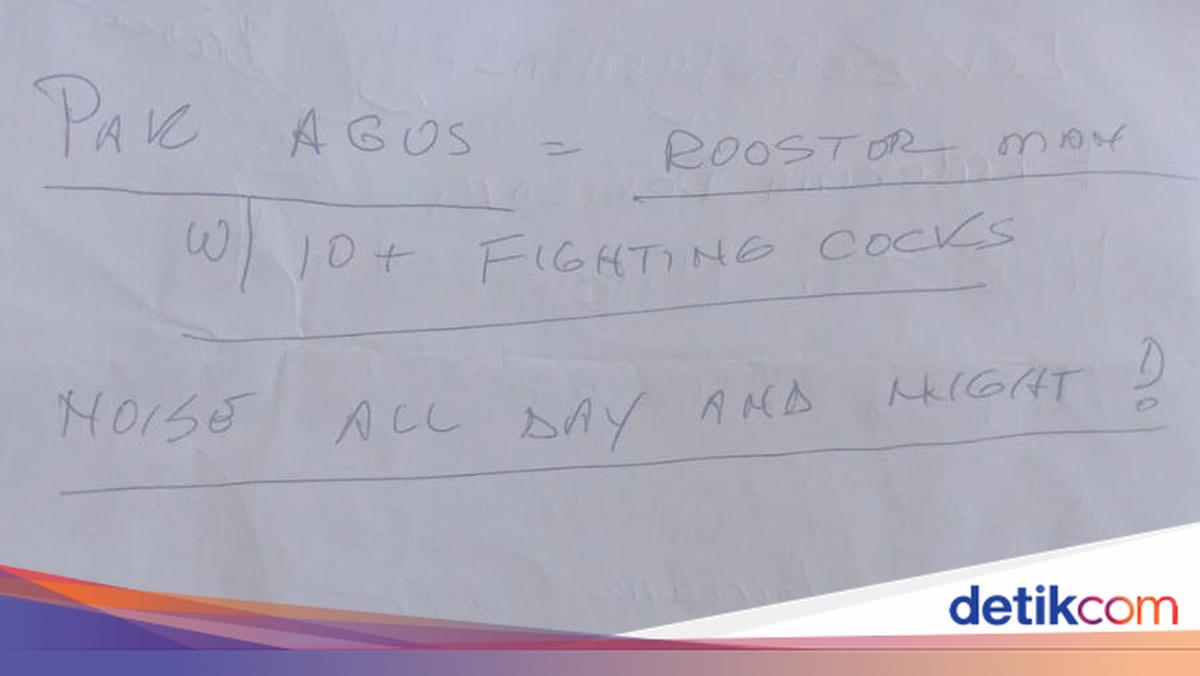 PAK AGUS = ROOSTOR MAN
W/ 10+ FIGHTING COCKS
NOISE ALL DAY AND NIGHT !
detikcom